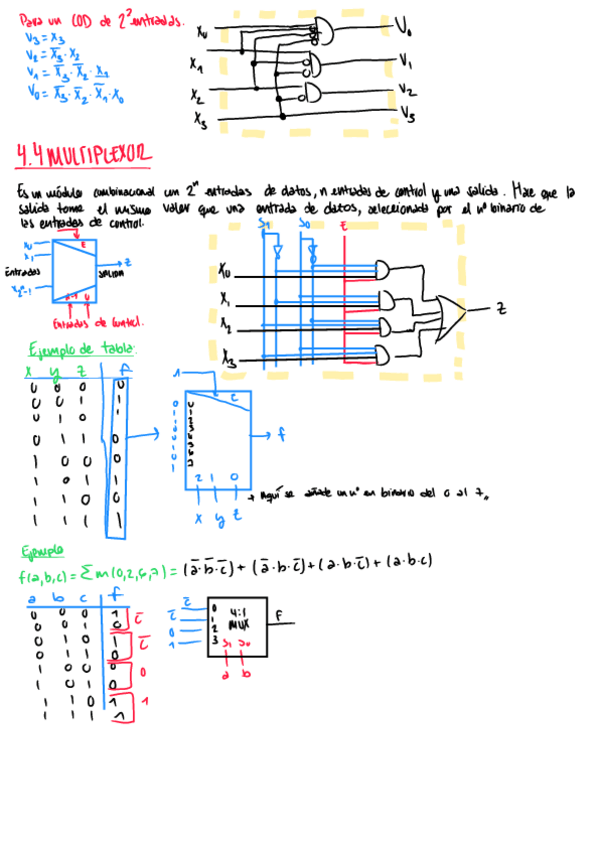 Para un COD de 2² entradas.
V₃ = x₃
V₂ = x̄₃ · x₂
V₁ = x̄₃ · x̄₂ · x₁
V₀ = x̄₃ · x̄₂ · x̄₁ · x₀
x₀ V₀
x₁ V₁
x₂ V₂
x₃ V₃
4.4 MULTIPLEXOR
Es un módulo combinacional con 2ⁿ entradas de datos, n entradas de control y una salida. Hace que la
salida tome el mismo valor que una entrada de datos, seleccionada por el nº binario de
las entradas de control.
E
x₀
x₁
Entradas
SALIDA
z
x₂ⁿ₋₁
n-1 0
Entradas de control.
S₁ S₀ E
x₀
x₁
x₂
x₃
z
Ejemplo de tabla:
x y z f
0 0 0 0
0 0 1 1
0 1 0 1
0 1 1 0
1 0 0 0
1 0 1 1
1 1 0 0
1 1 1 1
1
E
0
1
2
3
4
5
6
7
f
2 1 0
x y z
Aquí se añade un nº en binario del 0 al 7.
Ejemplo
f(a,b,c) = Σ m(0,2,6,7) = (ā·b̄·c̄) + (ā·b·c̄) + (a·b·c̄) + (a·b·c)
a b c f
0 0 0 1
0 0 1 0
c̄
0 1 0 1
0 1 1 0
c̄
1 0 0 0
1 0 1 0
0
1 1 0 1
1 1 1 1
1
c̄ 0
c̄ 1
0 2
1 3
4:1
MUX
S₁ S₀
F
a b